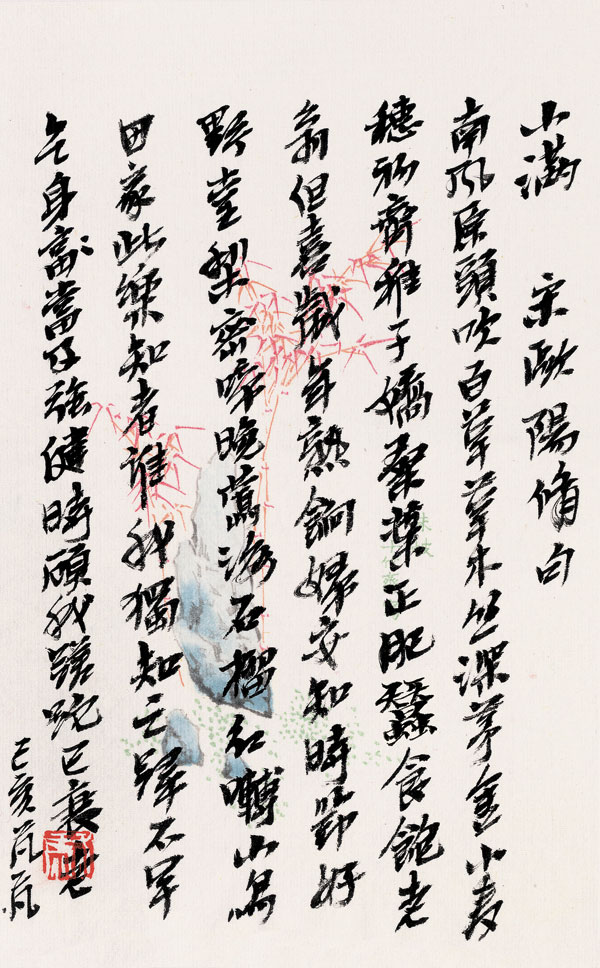 小滿 宋歐陽脩句
南風原頭吹百草草木丛深茅舍小麦
穗初齊稚子嬌桑葉正肥蠶食飽老
翁但喜歲年熟餉婦安知時節好
野棠梨密啼晚鶯海石榴红囀山鳥
田家此樂知者誰我獨知之歸不早
乞身富當及強健時顧我蹉跎已衰老
己亥芃芃